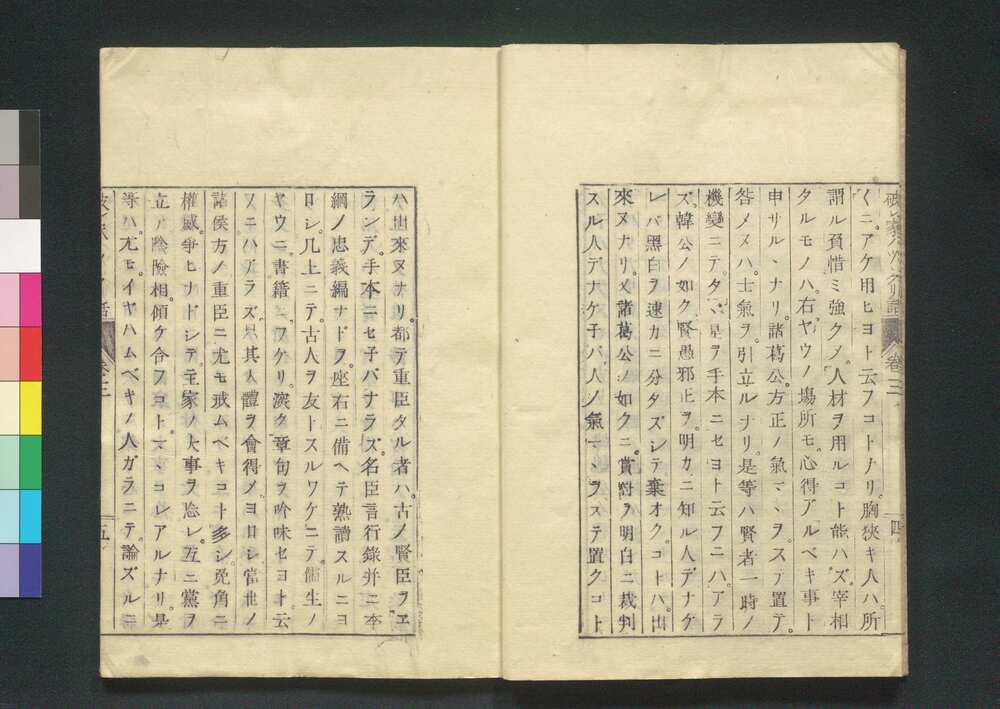 破レ家ノツヾクリ話 卷三 四
クニ。アケ用ヒヨト云フコトナリ。胸狹キ人ハ。所
謂ル負惜ミ強クメ。人材ヲ用ルコト能ハズ。宰相
タルモノハ。右ヤウノ場所モ。心得アルベキ事ト
申サル丶ナリ。諸葛公。方正ノ氣マ丶ヲ。ステ置テ。
咎メヌハ。士氣ヲ。引立ルナリ。是等ハ賢者一時ノ
機變ニテ。タヾ是ヲ手本ニセヨト云フニハ。アラ
ズ。韓公ノ如ク賢愚邪正ヲ。明カニ知ル人デナケ
レバ。黑白ヲ速カニ分タズシテ棄オク。コトハ。出
來ヌナリ。又諸葛公ノ如クニ。賞罰ヲ明白ニ裁判
スル人デナケ子バ。人ノ氣マ丶ヲステ置クコト
ハ出來ヌナリ。都テ重臣タル者ハ。古ノ賢臣ヲヱ
ランデ。手本ニセ子バナラズ。名臣言行錄幷ニ本
綱ノ忠義編ナドヲ。座右ニ備ヘテ熟讀スルニヨ
ロシ。几上ニテ。古人ヲ友トスルワケニテ。儒生ノ
ヤウニ。書籍ニフケリ。深ク章句ヲ吟味セヨト云
フニハアラズ。只其人體ヲ會得メヨロシ。當世ノ
諸侯方ノ重臣ニ尤モ戒ムベキコト多シ。兎角ニ
權威。爭ヒナドシテ。主家ノ大事ヲ忘レ。互ニ黨ヲ
立テ。陰險相傾ケ合フコト。マ丶コレアルナリ。是
等ハ。尤モ。イヤハムベキノ人ガラニテ。論ズルニ
卷三 五